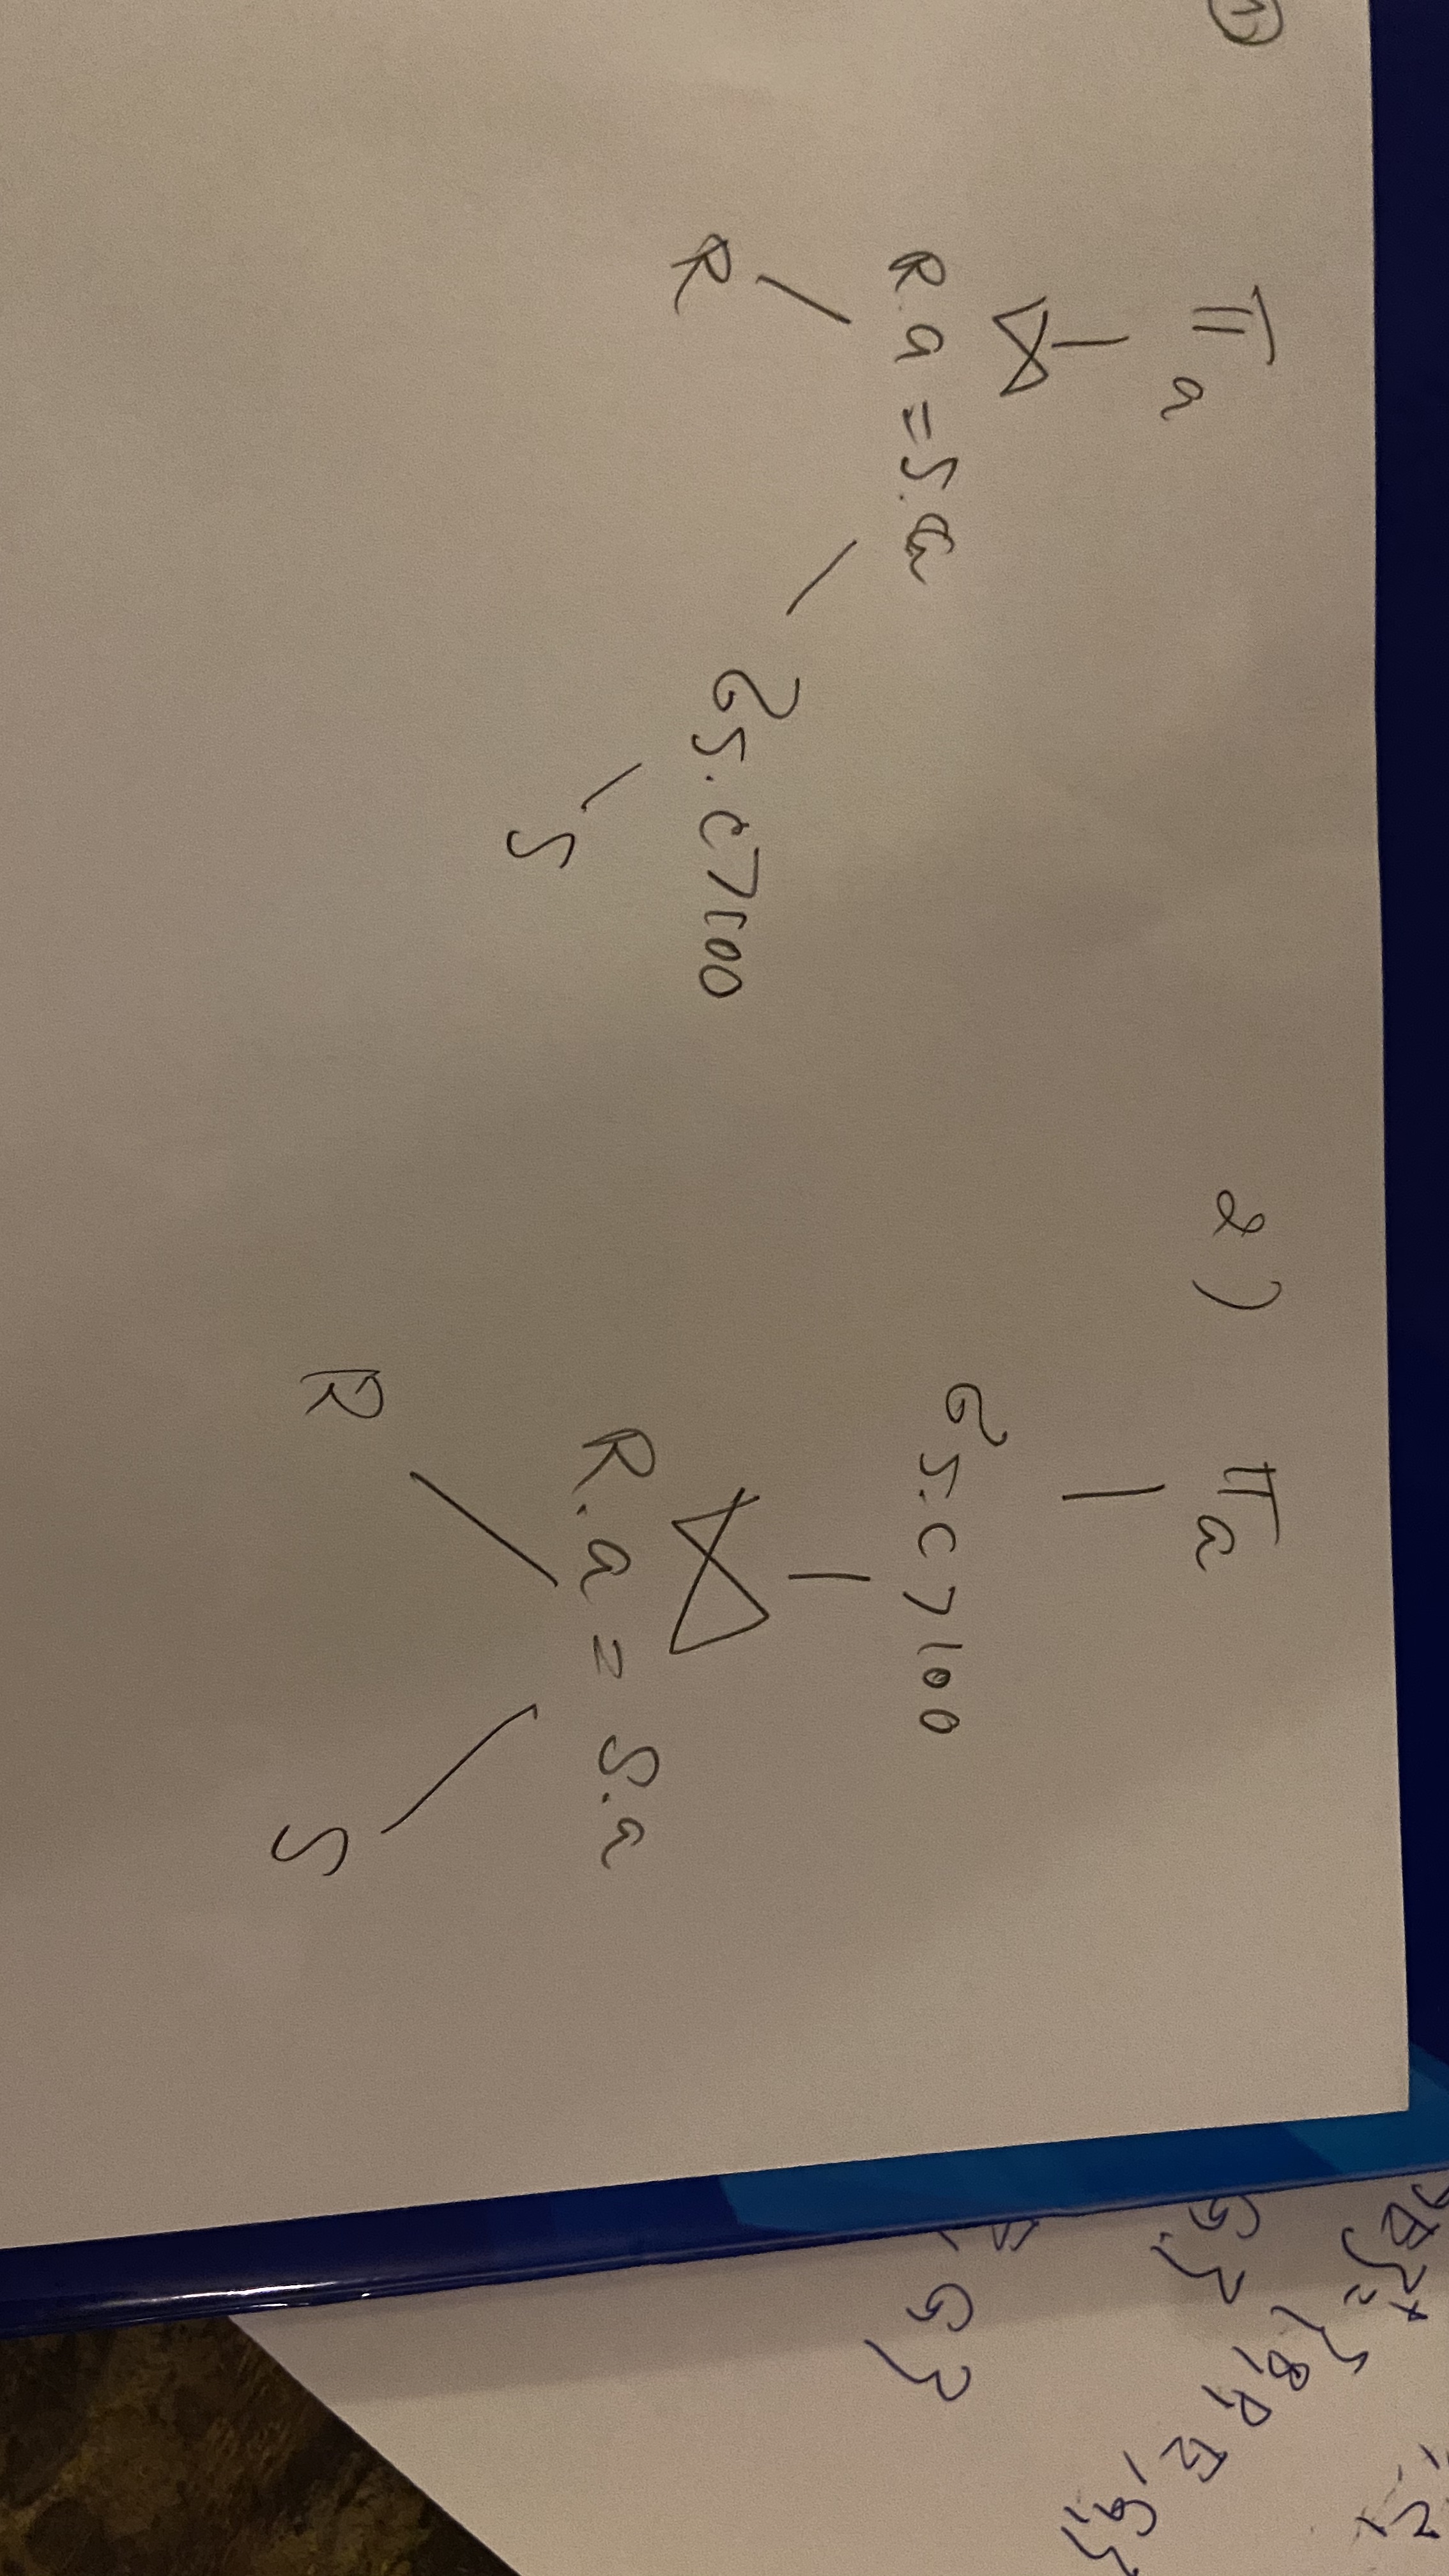 1
π a
⋈
R.a = S.a
R
σ S.C > 100
S
2)
π a
σ S.C > 100
⋈
R.a = S.a
R
S